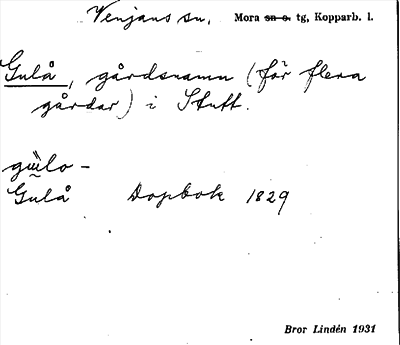 Venjans sn. Mora sn o. tg, Kopparb. l.
Gulå, gårdsnamn (för flera
gårdar) i Stutt.
gɯlo-
Gulå Dopbok 1829
Bror Lindén 1931